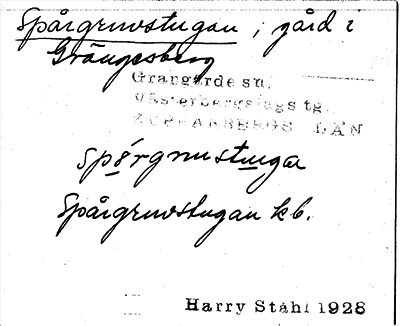 Spårgruvstugan, gård i
Grängesberg
Grangärde sn.
Västerbergslags tg.
KOPPARBERGS LÄN
spǫ́rgruvstugɑ
Spårgruvstugan kb.
Harry Ståhl 1928